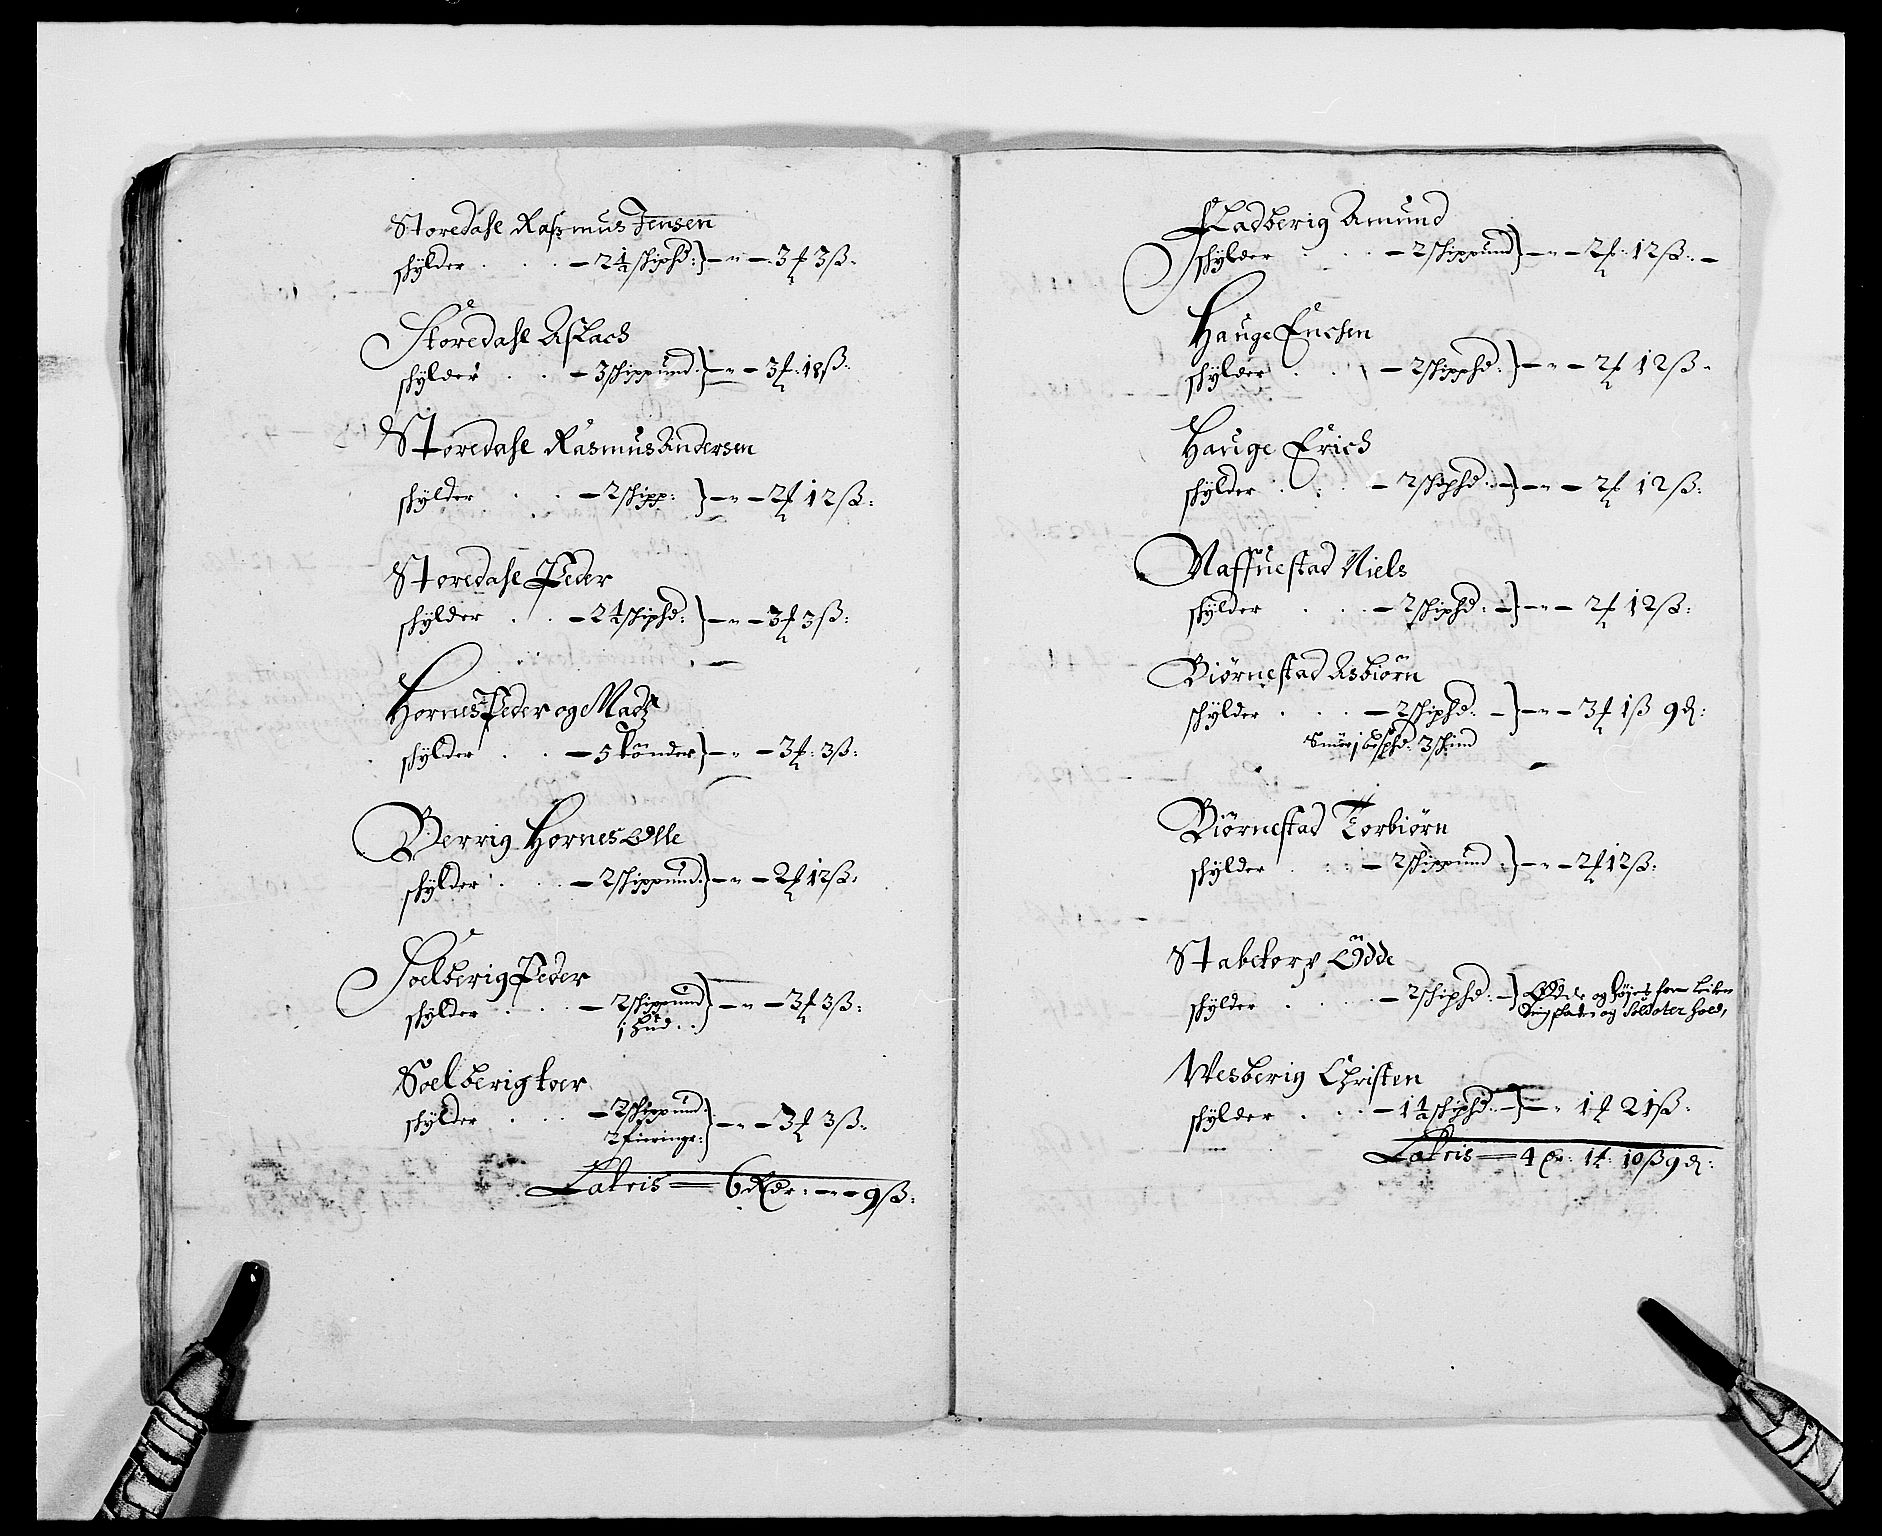 Storedahl Rasmus Jensen
schÿlder . . . — 2½ schiphd: } — " — 3 ƒ 3 ß.
Storedahl Aslach
schÿlder . . — 3 schippund } — " — 3 ƒ: 18 ß.
Storedahl Rasmus Andersen
schÿlder . . — 2 schipp: } — " — 2 ƒ 12 ß:
Storedahl Peder
schÿlder . . — 2½ schiphd: } — " — 3 ƒ 3 ß:
Hornes Peder og Madz
schÿlder . . — 5 tönder } — " — 3 ƒ: 3 ß:
Berrig Hornes Olle
schÿlder . . — 2 schippund } — " — 2 ƒ 12 ß:
Soelberig Peder
schÿlder . . . — 2 schippund } — " — 3 ƒ 3 ß:
1 hud . .
Soelberig toer
schÿlder . . . — 2 schippund } — " — 3 ƒ 3 ß:
2 fieringr:
Lateris — 6 Rdr: — " — 9 ß:
Fladberig Amund
schÿlder . . . — 2 schippund } — " — 2 ƒ: 12 ß: —
Hauge Enchen
schÿlder . . . — 2 schipphd: } — " — 2 ƒ 12 ß.
Hauge Erich
schÿlder . . — 2 schiphd: } — " — 2 ƒ 12 ß:
Naffuestad Niels
schÿlder . . . — 2 schiphd: } — " — 2 ƒ 12 ß:
Biörnestad Asbiörn
schÿlder . . . — 2 schiphd: } — " — 3 ƒ 1 ß 9 d:
Smör 1 bisphd: 3 schind
Biörnestad Torbiörn
schÿlder . . . — 2 schippund } — " — 2 ƒ 12 ß:
Stabetorp Ödde
schÿlder . . . — 2 schiphd: } Ödde og
og Soldater hold,
Wesberig Christen
schÿlder . . . — 1½ schiphd: } — " 1 ƒ 21 ß:
Lateris — 4 Dr: 1 ƒ: 10 ß 9 d: